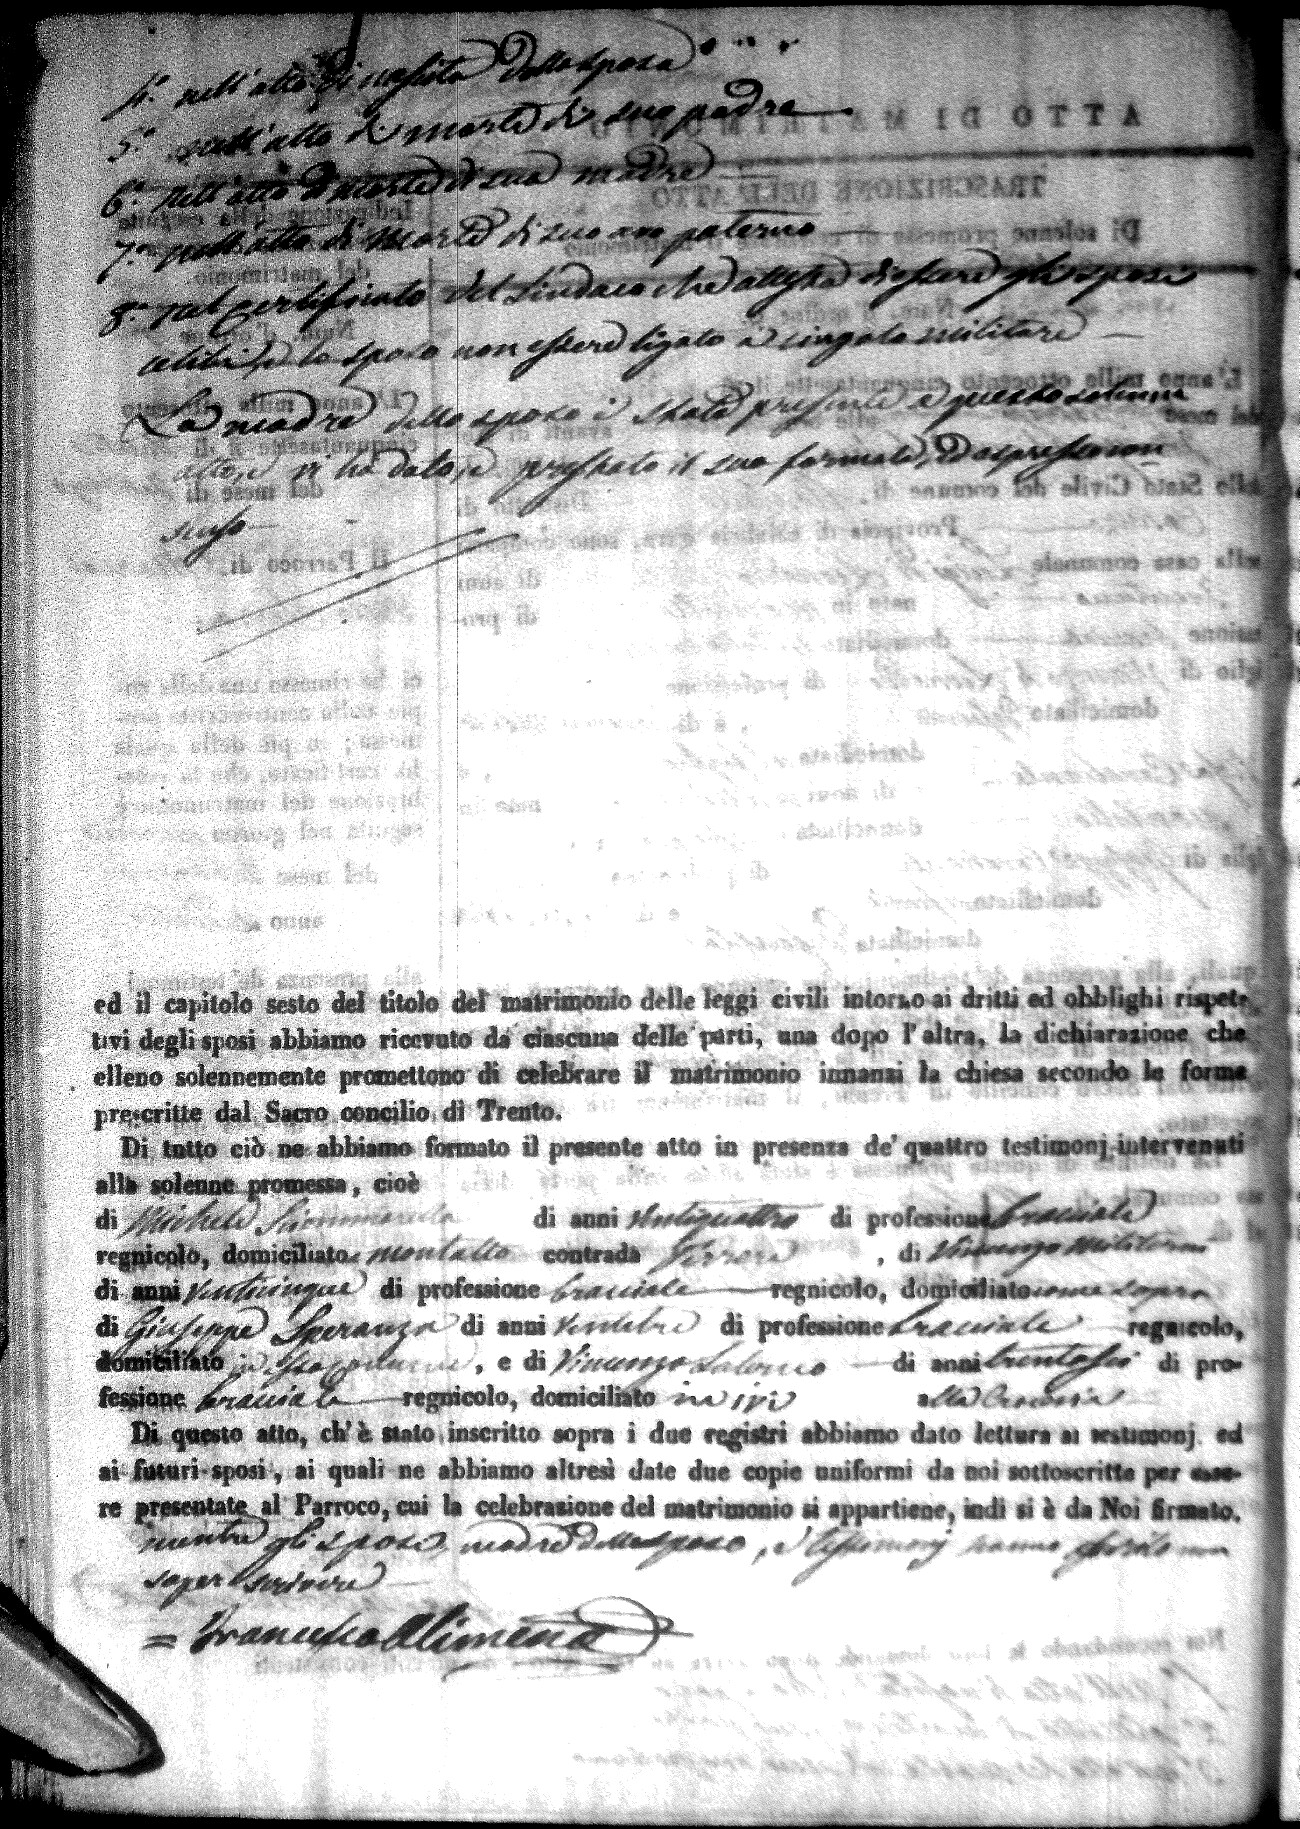 4.° nell'atto di nascita della sposa
5.° nell'atto di morte di suo padre
6.° nell'atto di morte di sua madre
7.° nell'atto di morte di suo avo paterno
8.° nel certificato del Sindaco che attesta di essere gli sposi
celibi, e lo sposo non essere ligato a cingolo militare
La madre dello sposo è stata presente a questo solenne
atto, e vi ha dato, e prestato il suo formale, ed espresso con
senso
ed il capitolo sesto del titolo del matrimonio delle leggi civili intorno ai dritti ed obblighi rispet-
tivi degli sposi abbiamo ricevuto da ciascuna delle parti, una dopo l'altra, la dichiarazione che
elleno solennemente promettono di celebrare il matrimonio innanzi la chiesa secondo le forme
prescritte dal Sacro concilio di Trento.
Di tutto ciò ne abbiamo formato il presente atto in presenza de' quattro testimonj intervenuti
alla solenne promessa, cioè
di Michele di anni ventiquattro di professione bracciale
regnicolo, domiciliato montalto contrada , di Vincenzo
di anni venticinque di professione bracciale regnicolo, domiciliato come sopra
di Giuseppe Speranza di anni ventitre di professione bracciale regnicolo,
domiciliato in , e di Vincenzo Salerno di anni trentasei di pro-
fessione bracciale regnicolo, domiciliato in ivi alla
Di questo atto, ch'è stato inscritto sopra i due registri abbiamo dato lettura ai testimonj ed
ai futuri sposi, ai quali ne abbiamo altresì date due copie uniformi da noi sottoscritte per esse-
re presentate al Parroco, cui la celebrazione del matrimonio si appartiene, indi si è da Noi firmato.
mentre gli sposi, madre dello sposo, e testimonj hanno detto non
saper scrivere
= Francesco Alimena